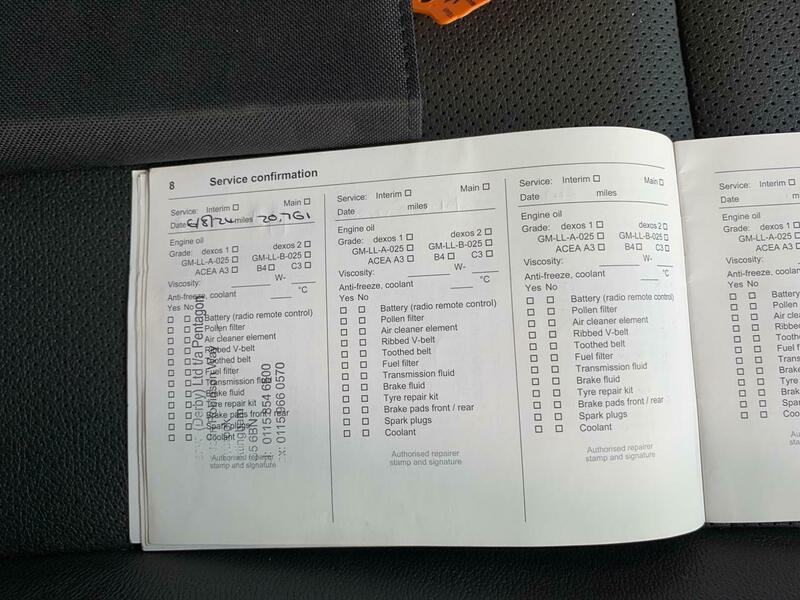 8 Service confirmation
Service: Interim ☐ Main ☐
Date 6/8/24 miles 20,761
Engine oil
Grade: dexos 1 ☐ dexos 2 ☐
GM-LL-A-025 ☐ GM-LL-B-025 ☐
ACEA A3 ☐ B4 ☐ C3 ☐
Viscosity: W-
Anti-freeze, coolant °C
Yes No
☐ ☐ Battery (radio remote control)
☐ ☐ Pollen filter
☐ ☐ Air cleaner element
☐ ☐ Ribbed V-belt
☐ ☐ Toothed belt
☐ ☐ Fuel filter
☐ ☐ Transmission fluid
☐ ☐ Brake fluid
☐ ☐ Tyre repair kit
☐ ☐ Brake pads front / rear
☐ ☐ Spark plugs
☐ ☐ Coolant
Authorised repairer
stamp and signature
(Derby) Ltd t/a Pentagon
Way
5 6BN
: 0115 854 6800
x: 0115 866 0570
Service: Interim ☐ Main ☐
Date miles
Engine oil
Grade: dexos 1 ☐ dexos 2 ☐
GM-LL-A-025 ☐ GM-LL-B-025 ☐
ACEA A3 ☐ B4 ☐ C3 ☐
Viscosity: W-
Anti-freeze, coolant °C
Yes No
☐ ☐ Battery (radio remote control)
☐ ☐ Pollen filter
☐ ☐ Air cleaner element
☐ ☐ Ribbed V-belt
☐ ☐ Toothed belt
☐ ☐ Fuel filter
☐ ☐ Transmission fluid
☐ ☐ Brake fluid
☐ ☐ Tyre repair kit
☐ ☐ Brake pads front / rear
☐ ☐ Spark plugs
☐ ☐ Coolant
Authorised repairer
stamp and signature
Service: Interim ☐ Main ☐
Date miles
Engine oil
Grade: dexos 1 ☐ dexos 2 ☐
GM-LL-A-025 ☐ GM-LL-B-025 ☐
ACEA A3 ☐ B4 ☐ C3 ☐
Viscosity: W-
Anti-freeze, coolant °C
Yes No
☐ ☐ Battery (radio remote control)
☐ ☐ Pollen filter
☐ ☐ Air cleaner element
☐ ☐ Ribbed V-belt
☐ ☐ Toothed belt
☐ ☐ Fuel filter
☐ ☐ Transmission fluid
☐ ☐ Brake fluid
☐ ☐ Tyre repair kit
☐ ☐ Brake pads front / rear
☐ ☐ Spark plugs
☐ ☐ Coolant
Authorised repairer
stamp and signature
Service: Interim ☐
Date
Engine oil
Grade: dexos 1 ☐
GM-LL-A-025 ☐
ACEA A3 ☐
Viscosity:
Anti-freeze, coolant
Yes No
☐ ☐ Battery (ra
☐ ☐ Pollen filte
☐ ☐ Air clean
☐ ☐ Ribbed V
☐ ☐ Toothed
☐ ☐ Fuel f
☐ ☐ Transm
☐ ☐ Brake
☐ ☐ Tyre
☐ ☐ Brak
☐ ☐ Spa
☐ ☐ Coo